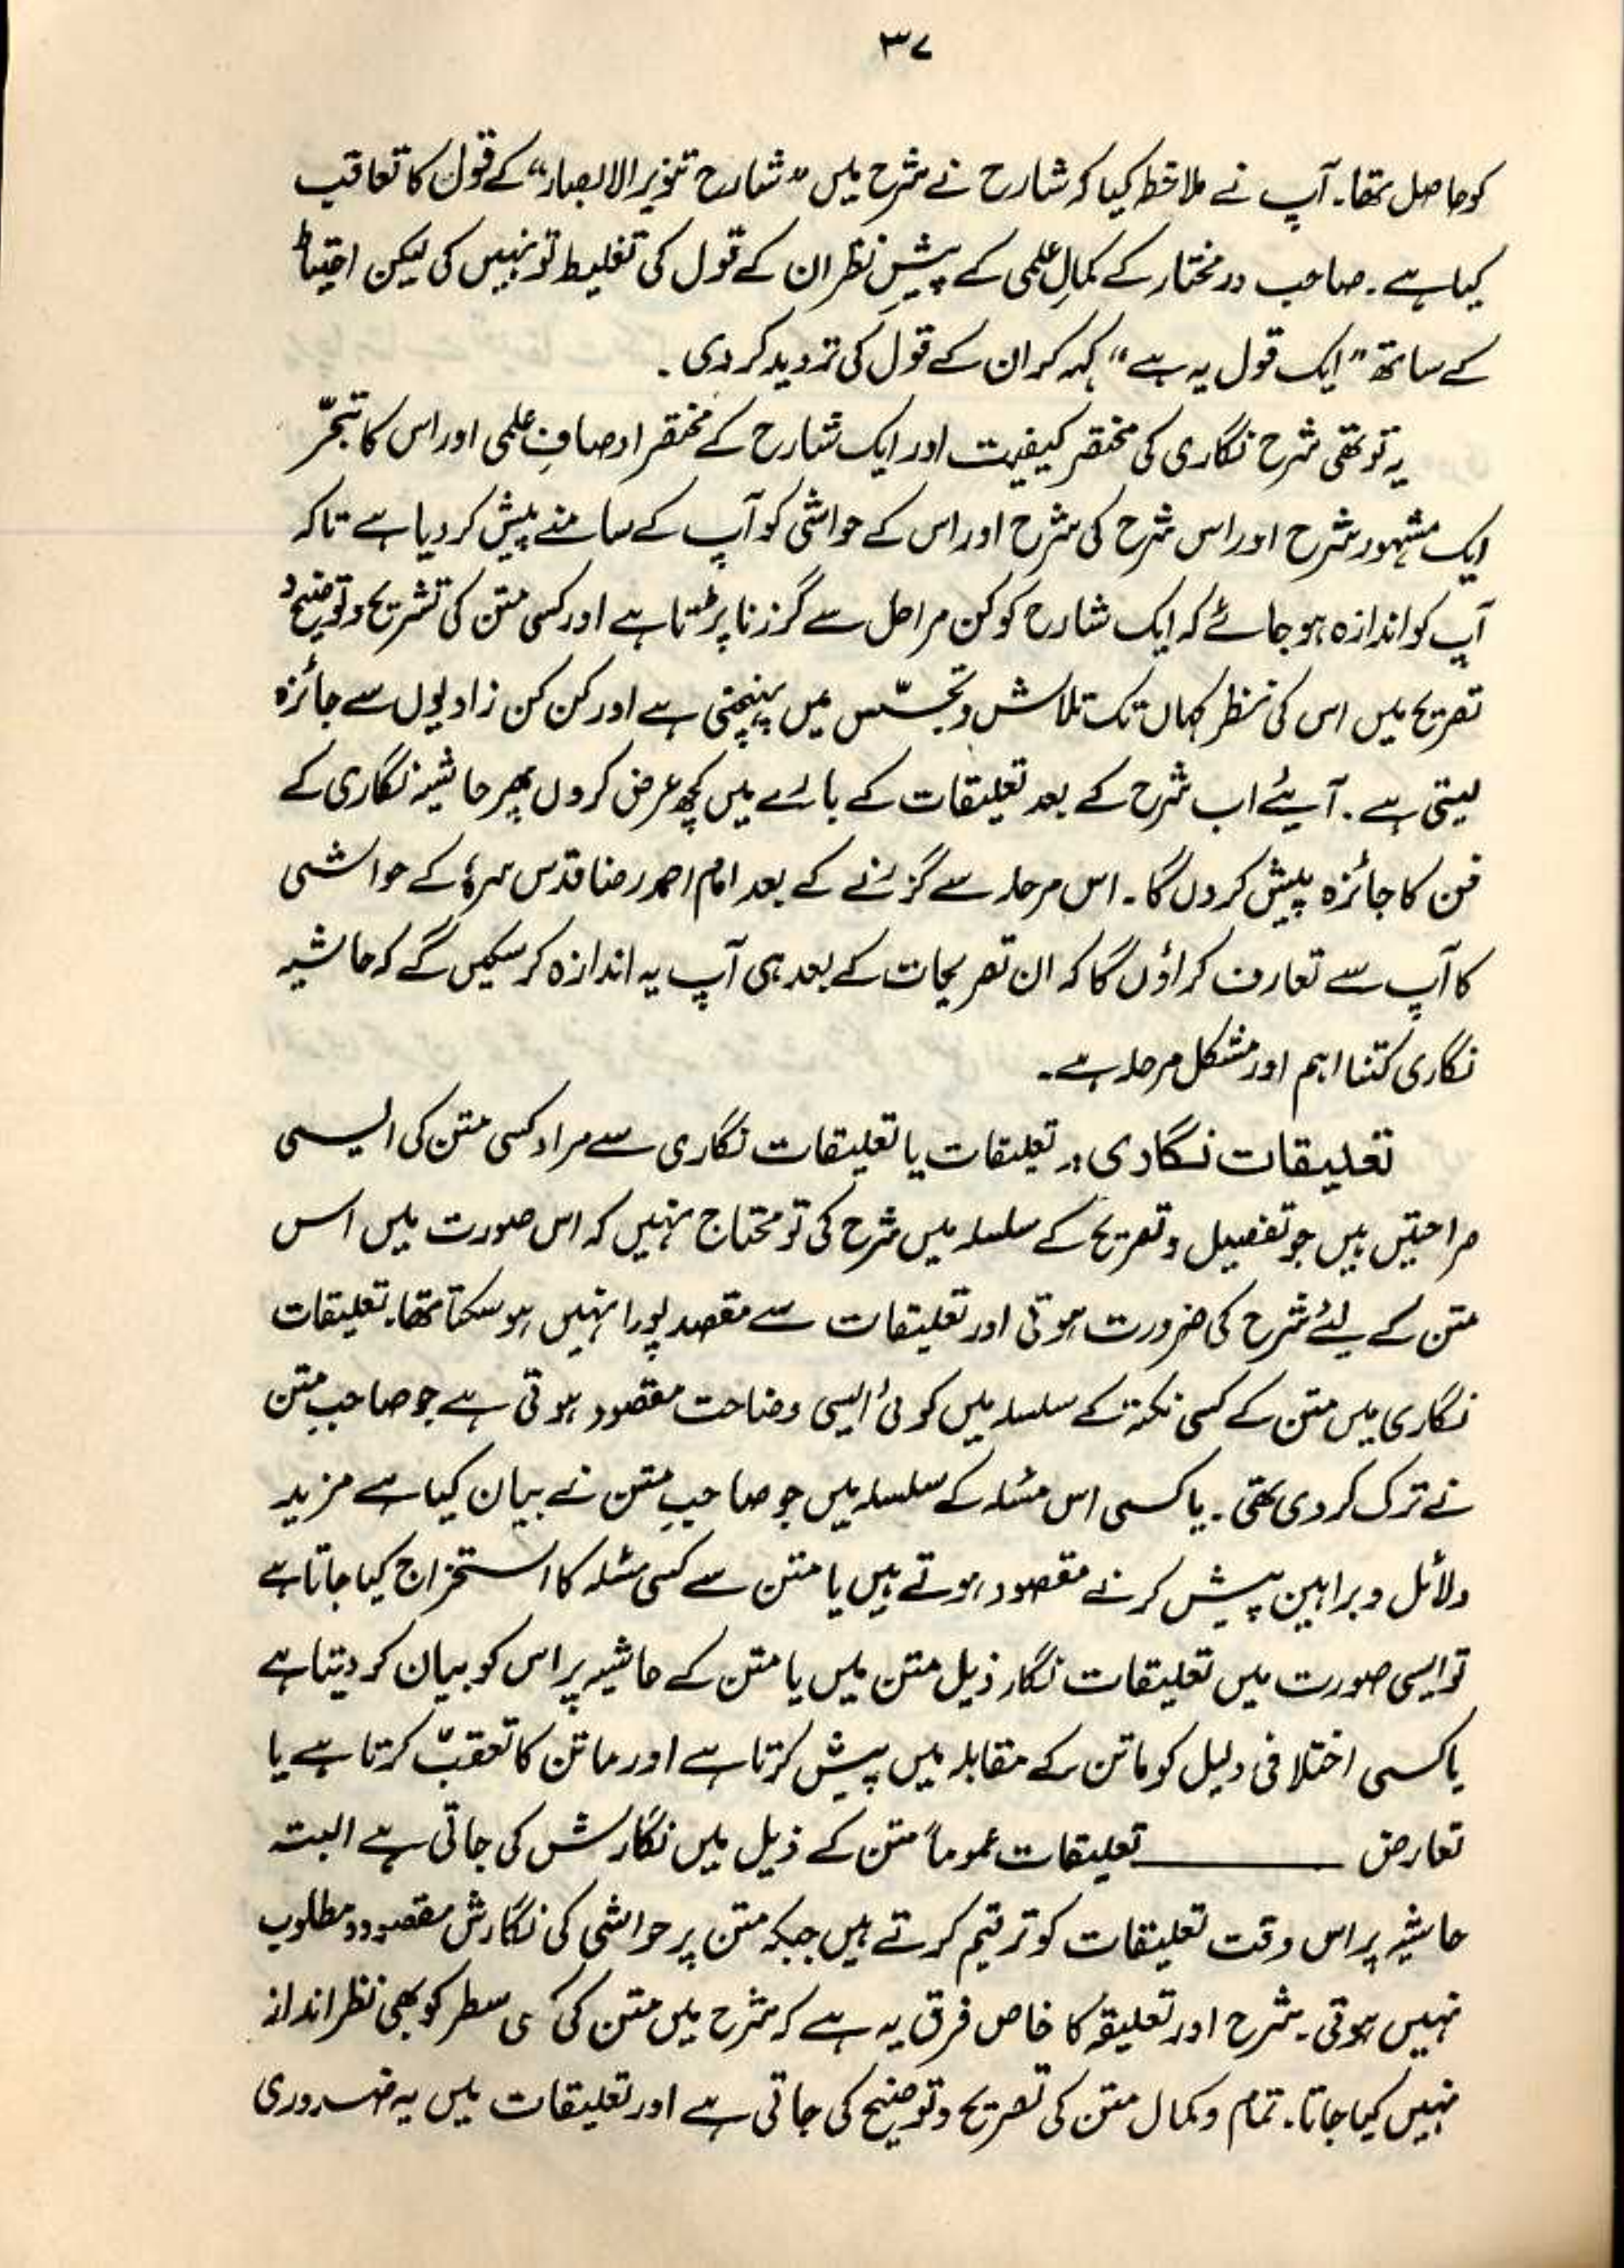 ۳۷
کو حاصل تھا۔ آپ نے ملاحظہ کیا کہ شارح نے شرح میں "شارح تنویر الابصار" کے قول کا تعاقب
کیا ہے۔ صاحب در مختار کے کمالِ علمی کے پیشِ نظر ان کے قول کی تغلیط تو نہیں کی لیکن احتیاط
کے ساتھ "ایک قول یہ ہے" کہہ کر ان کے قول کی تردید کر دی۔
یہ تو تھی شرح نگاری کی مختصر کیفیت اور ایک شارح کے مختصر اوصافِ علمی اور اس کا تبحّر
ایک مشہور شرح اور اس شرح کی شرح اور اس کے حواشی کو آپ کے سامنے پیش کر دیا ہے تاکہ
آپ کو اندازہ ہو جائے کہ ایک شارح کو کن مراحل سے گزرنا پڑتا ہے اور کسی متن کی تشریح و توضیح و
تصریح میں اس کی نظر کہاں تک تلاش و تجسّس میں پہنچتی ہے اور کن کن زاویوں سے جائزہ
لیتی ہے۔ آیئے اب شرح کے بعد تعلیقات کے بارے میں کچھ عرض کروں پھر حاشیہ نگاری کے
فن کا جائزہ پیش کروں گا۔ اس مرحلہ سے گزرنے کے بعد امام احمد رضا قدس سرہٗ کے حواشی
کا آپ سے تعارف کراؤں گا کہ ان تصریحات کے بعد ہی آپ یہ اندازہ کر سکیں گے کہ حاشیہ
نگاری کتنا اہم اور مشکل مرحلہ ہے۔
تعلیقات نگاری:۔ تعلیقات یا تعلیقات نگاری سے مراد کسی متن کی ایسی
صراحتیں ہیں جو تفصیل و تصریح کے سلسلہ میں شرح کی تو محتاج نہیں کہ اس صورت میں اس
متن کے لئے شرح کی ضرورت ہوتی اور تعلیقات سے مقصد پورا نہیں ہو سکتا تھا۔ تعلیقات
نگاری میں متن کے کسی نکتہ کے سلسلہ میں کوئی ایسی وضاحت مقصود ہوتی ہے جو صاحبِ متن
نے ترک کر دی تھی۔ یا کسی اس مسئلہ کے سلسلہ میں جو صاحبِ متن نے بیان کیا ہے مزید
دلائل و براہین پیش کرنے مقصود ہوتے ہیں یا متن سے کسی مسئلہ کا استخراج کیا جاتا ہے
تو ایسی صورت میں تعلیقات نگار ذیل متن میں یا متن کے حاشیہ پر اس کو بیان کر دیتا ہے
یا کسی اختلافی دلیل کو ماتن کے مقابلہ میں پیش کرتا ہے اور ماتن کا تعقبّ کرتا ہے یا
تعارض ــــــــــ تعلیقات عموماً متن کے ذیل میں نگارش کی جاتی ہے البتہ
حاشیہ پر اس وقت تعلیقات کو ترقیم کرتے ہیں جبکہ متن پر حواشی کی نگارش مقصود و مطلوب
نہیں ہوتی۔ شرح اور تعلیقہ کا خاص فرق یہ ہے کہ شرح میں متن کی کسی سطر کو بھی نظر انداز
نہیں کیا جاتا۔ تمام و کمال متن کی تصریح و توضیح کی جاتی ہے اور تعلیقات میں یہ ضروری